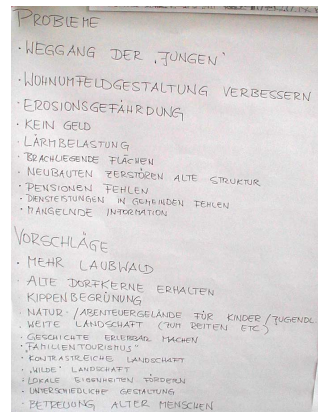 PROBLEME
· WEGGANG DER „JUNGEN"
· WOHNUMFELDGESTALTUNG VERBESSERN
· EROSIONSGEFÄHRDUNG
· KEIN GELD
· LÄRMBELASTUNG
· BRACHLIEGENDE FLÄCHEN
· NEUBAUTEN ZERSTÖREN ALTE STRUKTUR
· PENSIONEN FEHLEN
· DIENSTLEISTUNGEN IN GEMEINDEN FEHLEN
· MANGELNDE INFORMATION
VORSCHLÄGE
· MEHR LAUBWALD
· ALTE DORFKERNE ERHALTEN
KIPPENBEGRÜNUNG
· NATUR-/ABENTEUERGELÄNDE FÜR KINDER/JUGENDL
· WEITE LANDSCHAFT (ZUM REITEN ETC)
· GESCHICHTE ERLEBBAR MACHEN
· „FAMILIENTOURISMUS"
· KONTRASTREICHE LANDSCHAFT
· „WILDE" LANDSCHAFT
· LOKALE EIGENHEITEN FÖRDERN
· UNTERSCHIEDLICHE GESTALTUNG
· BETREUUNG ALTER MENSCHEN